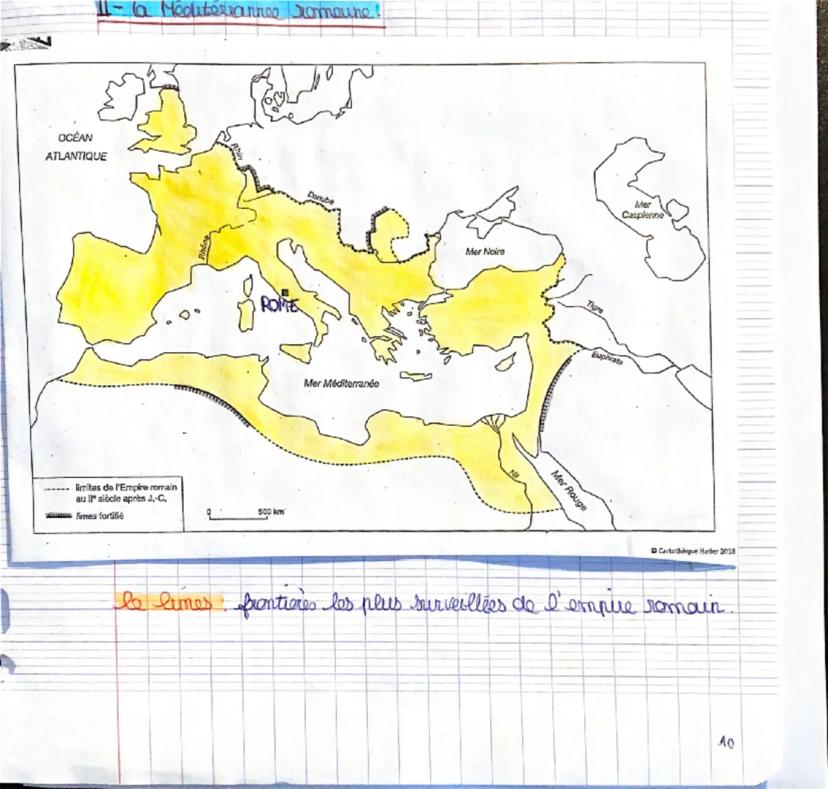 II- la Méditérrannée romaine:
OCÉAN
ATLANTIQUE
Rhin
Danube
Mer
Caspienne
Rhône
Mer Noire
ROME
Tigre
Euphrate
Mer Méditerranée
Nil
Mer Rouge
limites de l'Empire romain
au IIᵉ siècle après J.-C.
limes fortifié
0 500 km
© Cartothèque Hatier 2018
le limes: frontières les plus surveillées de l'empire romain.
10